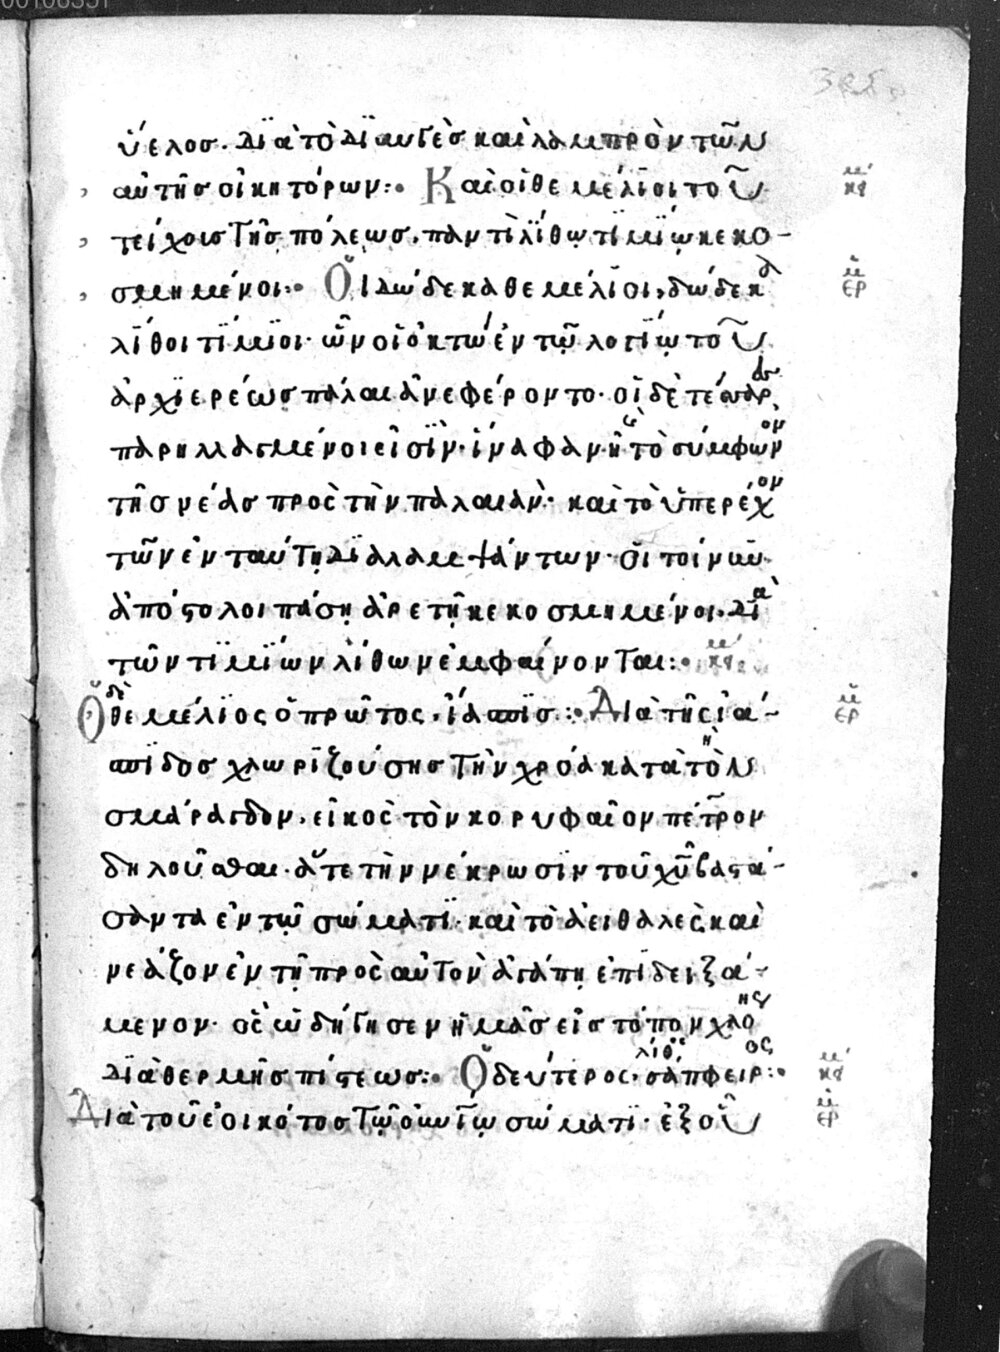 ὕελος. διὰ τὸ διαυγὲς καὶ λαμπρὸν τῶν
αὐτῆς οἰκητόρων:. Καὶ οἱ θεμέλιοι τοῦ κείμ
τείχους τῆς πόλεως, παντὶ λίθω τιμίω κεκο-
σμημένοι:. Οἱ δώδεκα θεμέλιοι, δώδεκα ἑρμ
λίθοι τίμιοι· ὧν οἱ ὀκτὼ ἐν τῷ λογίῳ τοῦ
ἀρχιερέως πάλαι ἀνεφέροντο· οἱ δὲ τέσσαρες
παρηλλαγμένοι εἰσίν· ἵνα φανῆ τὸ σύμφωνον
τῆς νέας πρὸς τὴν παλαιάν· καὶ τὸ ὑπερέχον
τῶν ἐν ταύτῃ διαλαμψάντων· οἱ τοίνυν
ἀπόστολοι πάσῃ ἀρετῇ κεκοσμημένοι. διὰ
τῶν τιμίων λίθων ἐμφαίνονται:. κείμ
Ὁ δὲ θεμέλιος ὁ πρῶτος, ἴασπις:. Διὰ τῆς ἰά- ἑρμ
σπιδος χλωριζούσης τὴν χρόα κατὰ τὴν
σμάραγδον, εἰκὸς τὸν κορυφαῖον πέτρον
δηλοῦσθαι. ἅτε τὴν νέκρωσιν τοῦ χῦ βαστά-
σαντα ἐν τῷ σώματι· καὶ τὸ ἀειθαλὲς καὶ
νεάζον ἐν τῇ πρὸς αὐτὸν ἀγάπῃ ἐπιδειξά-
μενον· ὃς ὡδήγησεν ἡμᾶς εἰς τόπον χλόης
διὰ θερμῆς πίστεως:. Ὁ δεύτερος λίθος, σάπφειρος:. κείμ
Διὰ τοῦ ἐοικότος τῷ οὐνῶ σώματι· ἐξ οὗ ἑρμ